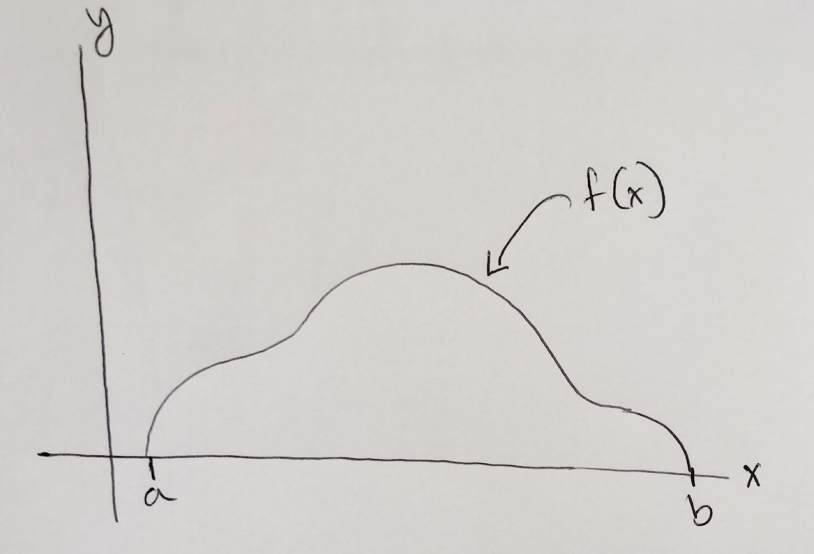 y
f(x)
x
a
b